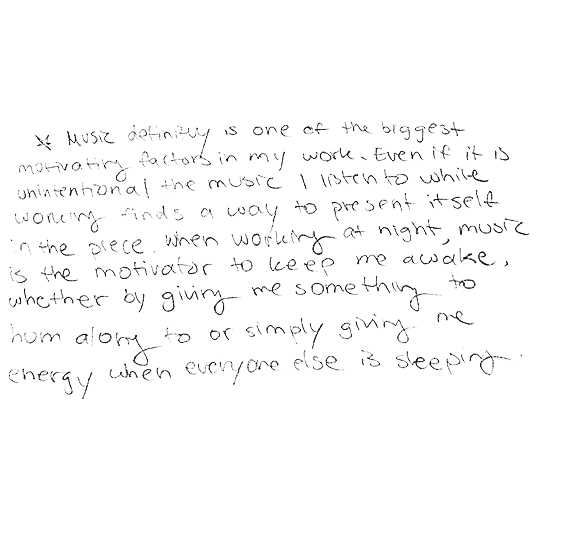 * Music definitly is one of the biggest
motivating factors in my work. Even if it is
unintentional the music I listen to while
working finds a way to present itself
in the piece. When working at night, music
is the motivator to keep me awake,
whether by giving me something to
hum along to or simply giving me
energy when everyone else is sleeping.